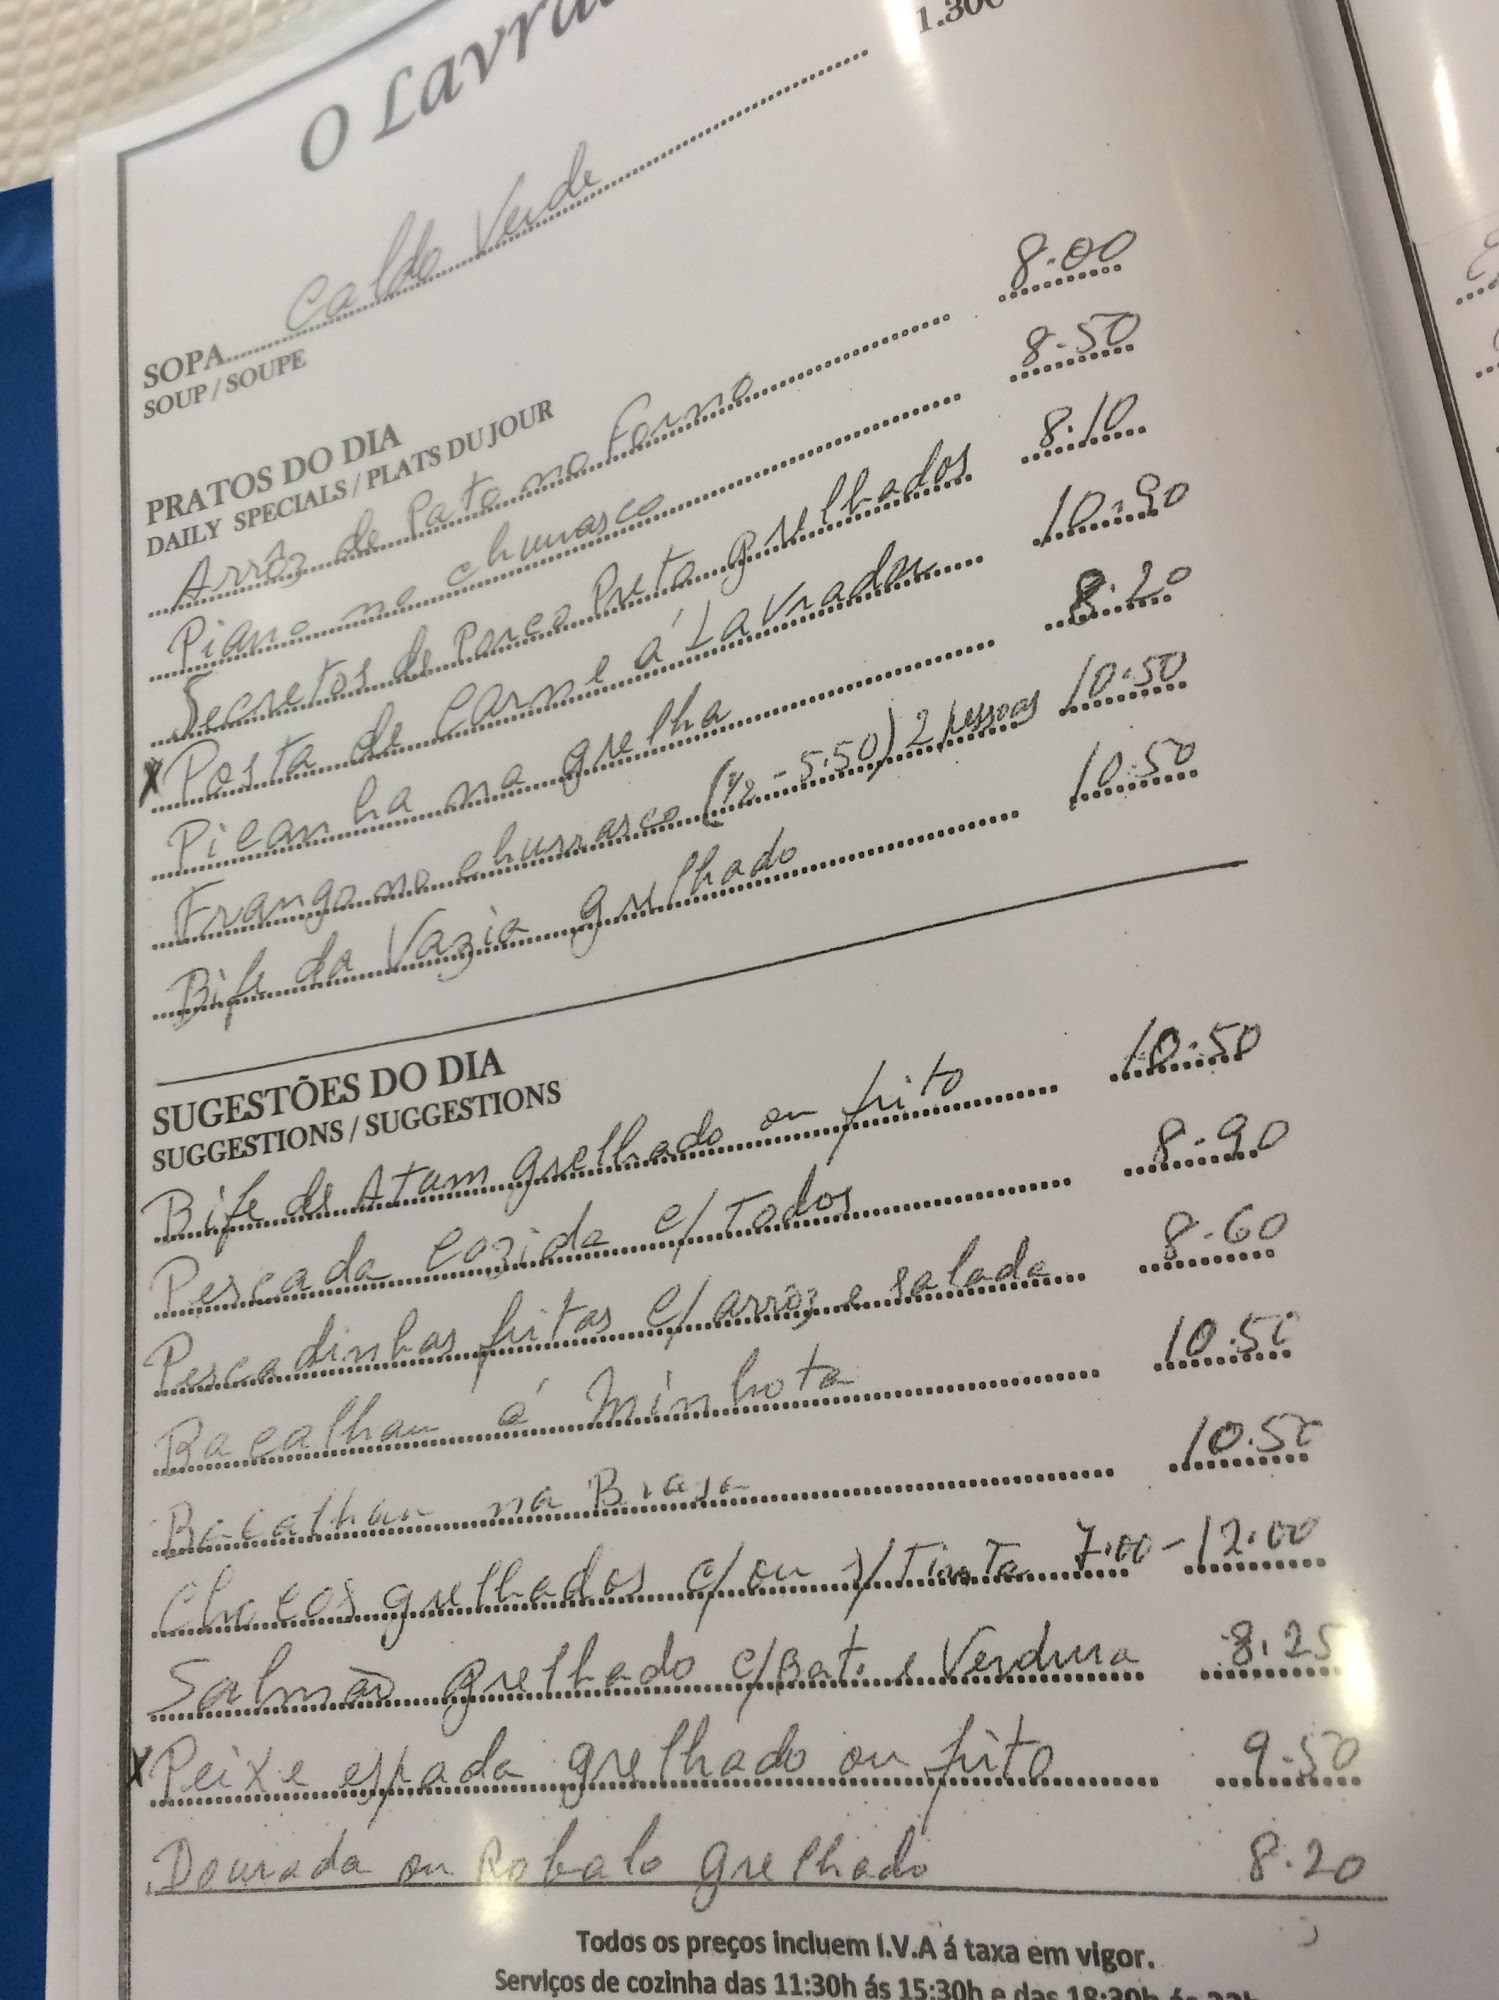 O Lavra
SOPA Caldo Verde 1.30
SOUP / SOUPE
PRATOS DO DIA
DAILY SPECIALS / PLATS DU JOUR
Arrôz de Pato no Forno 8.00
Piano no churrasco 8.50
Secretos de Porco Preto grelhados 8.10
X Posta de Carne á Lavrador 10.90
Picanha na grelha 8.20
Frango no churrasco (1/2 - 5.50) 2 pessoas 10.50
Bife da Vazia grelhado 10.50
SUGESTÕES DO DIA
SUGGESTIONS / SUGGESTIONS
Bife de Atum grelhado ou frito 10.50
Pescada cozida c/ Todos 8.90
Pescadinhas fritas c/ arrôz e salada 8.60
Bacalhau á Minhota 10.50
Bacalhau na Brasa 10.50
Chocos grelhados c/ ou s/ Tinta 7.00 - 12.00
Salmão grelhado c/ Bat. e Verdura 8.25
X Peixe espada grelhado ou frito 9.50
Dourada ou Robalo grelhado 8.20
Todos os preços incluem I.V.A á taxa em vigor.
Serviços de cozinha das 11:30h ás 15:30h e das 18:30h ás